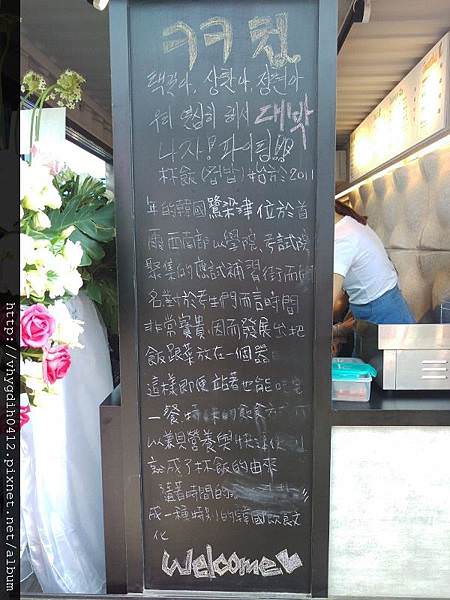 ㅋㅋ 컵
우리 열심히 해서 대박
나자! 파이팅
杯飯(컵밥)始於2011
年的韓國鷺梁津位於首
爾西南部以學院、考試院
聚集的應試補習街而聞
名對於考生們而言時間
非常寶貴因而發展出把
飯跟菜放在一個器
這樣即便站著也能吃完
一餐特味的飲食方
以兼具營養與快速便利
就成了杯飯的由來
隨著時間的
成一種特別的韓國飲食文
化
Welcome
http://vhygdih0412.pixnet.net/album